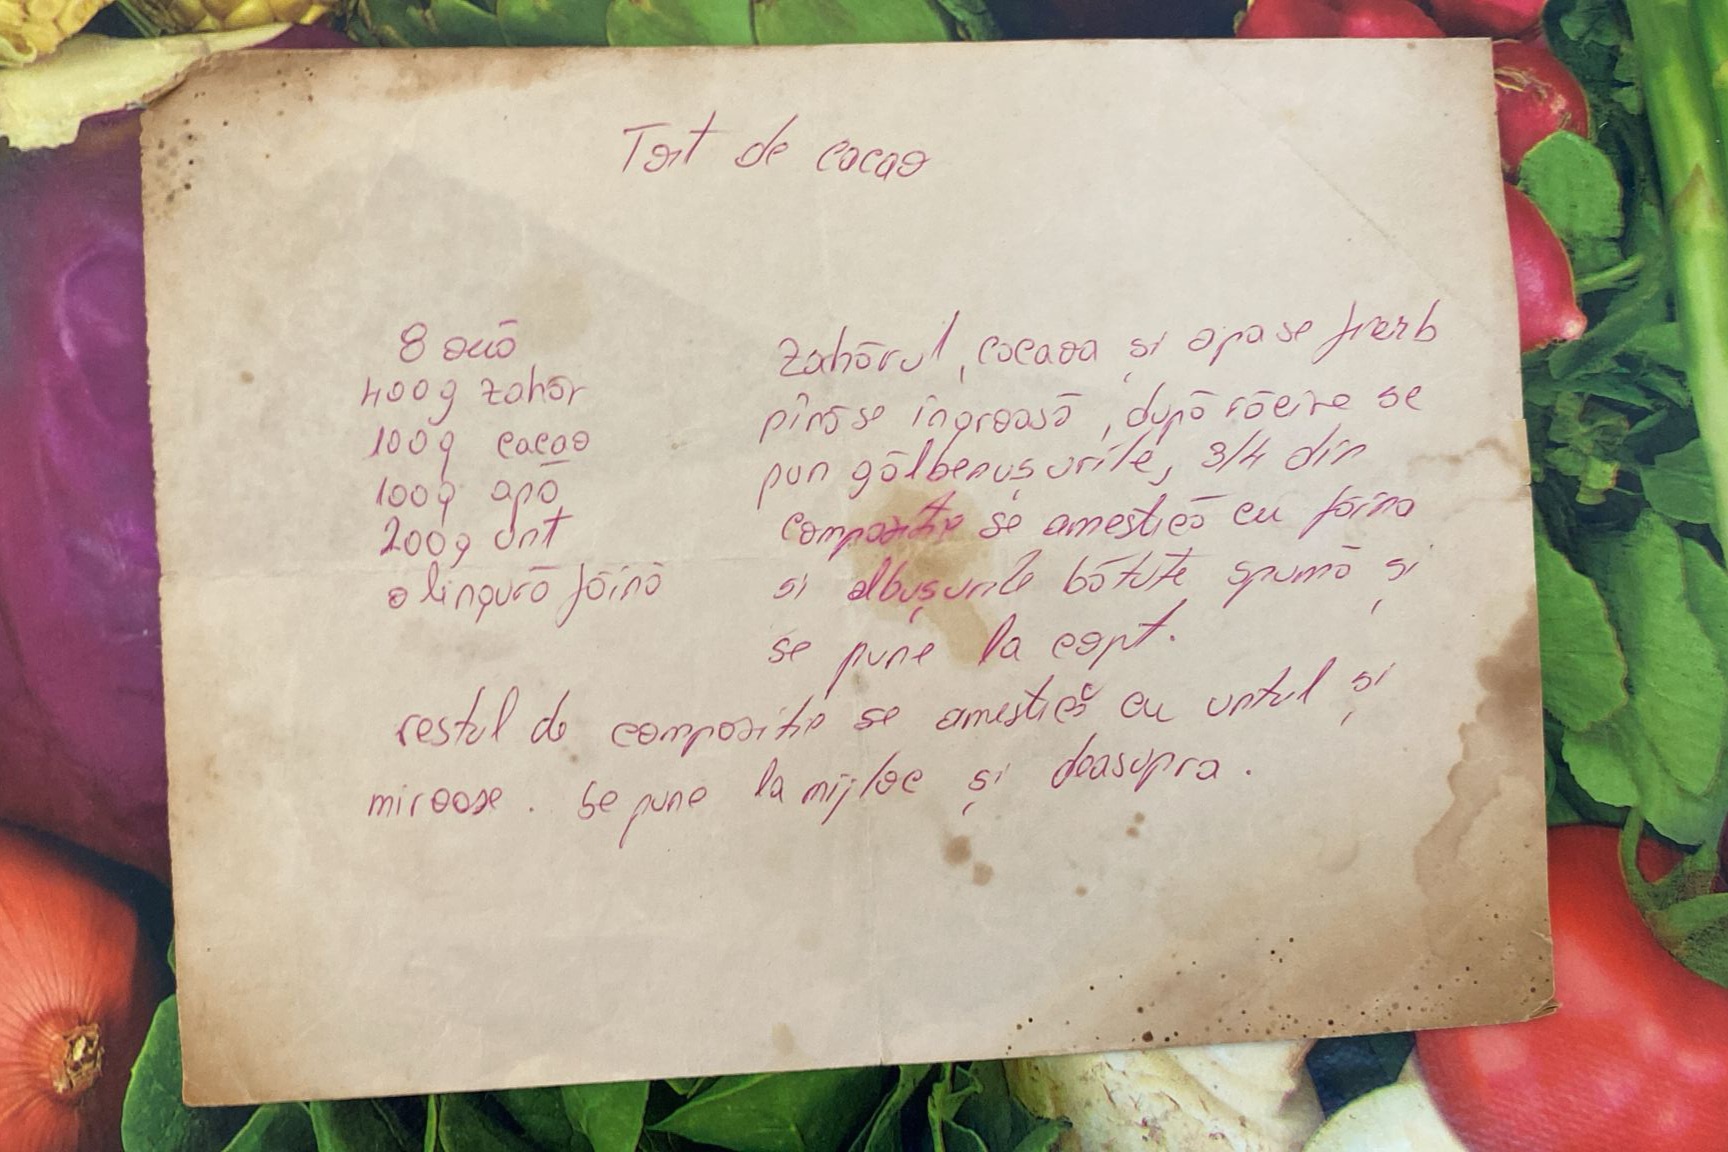 Tort de cacao
8 ouă
400g zahăr
100g cacao
100g apă
200g unt
o lingură făină
Zahărul, cacaoa și apa se fierb
pînă se îngroasă, după răcire se
pun gălbenușurile, 3/4 din
compoziție se amestică cu făina
si albușurile bătute spumă și
se pune la copt.
restul de compoziție se amestică cu untul și
miroase. Se pune la mijloc și deasupra.